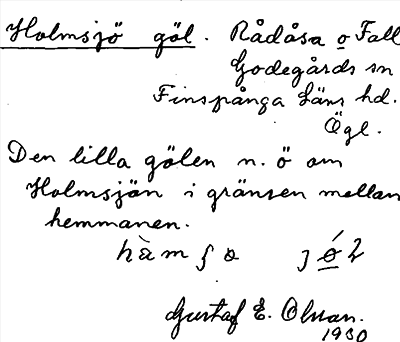 Holmsjö göl. Rådåsa o Fall
Godegårds sn
Finspånga Läns hd.
Ögl.
Den lilla gölen n. ö om
Holmsjön i gränsen mellan
hemmanen.
Gustaf E. Olsson.
1930